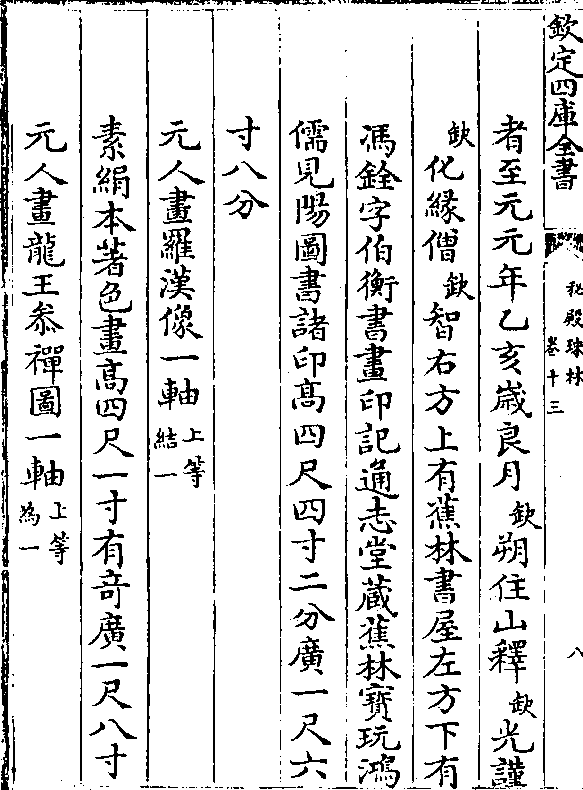 欽定四庫全書
秘殿珠林
卷十三
八
者至元元年乙亥歲良月欽朔住山釋欽光謹
欽化緣僧欽智右方上有蕉林書屋左方下有
馮銓字伯衡書畫印記通志堂藏蕉林寶玩鴻
儒見陽圖書諸印髙四尺四寸二分廣一尺六
寸八分
元人畫羅漢像一軸上等結一
素絹本著色畫髙四尺一寸有竒廣一尺八寸
元人畫龍王叅禪圖一軸上等為一